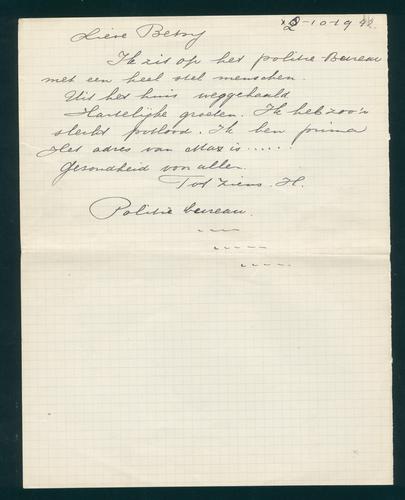 2-10-1942
Lieve Betsy
Ik zit op het politie Bureau
met een heel stel menschen.
Uit het huis weggehaald
Hartelijke groeten. Ik heb zoo'n
slecht potlood. Ik ben prima
Het adres van Max is ......
Gezondheid van allen.
Tot ziens. H.
Politie bureau.